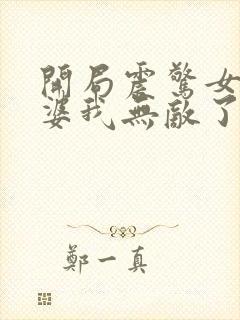 開局震驚女
婆我無敵了
鄭一真